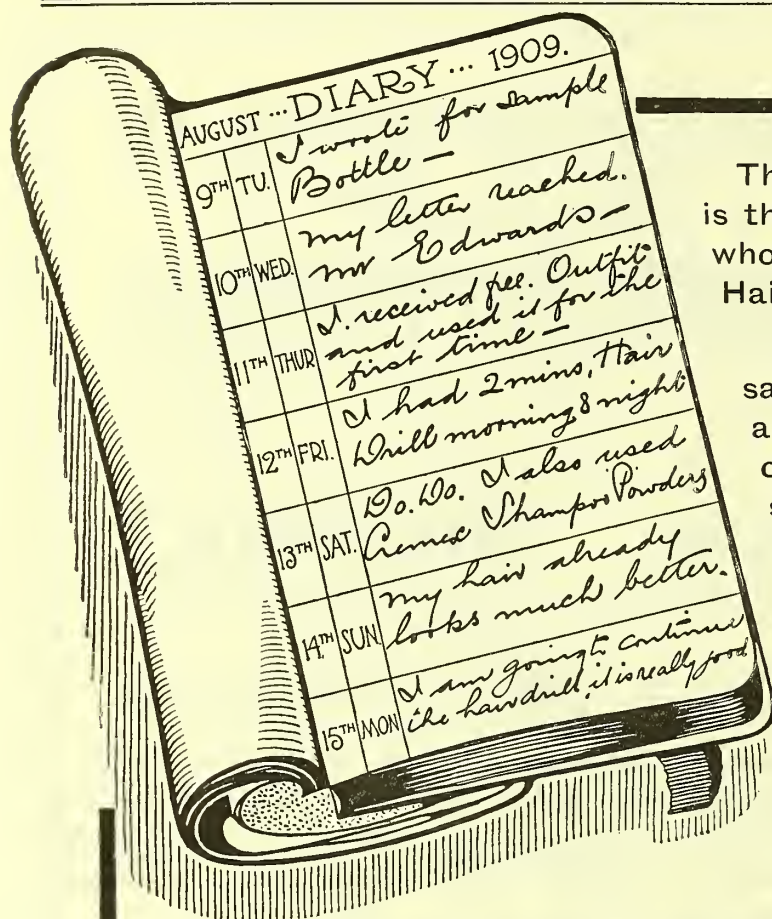 AUGUST ... DIARY ... 1909.
9TH TU. I wrote for sample
Bottle —
10TH WED. my letter reached.
mr Edwards —
11TH THUR I. received free. Outfit
and used it for the
first time —
12TH FRI. I had 2 mins, Hair
Drill morning & night
13TH SAT. Do. Do. I also used
Cremex Shampoo Powders
14TH SUN. my hair already
looks much better.
15TH MON I am going to continue
the hair drill, it is really good
Th
is th
who
Hai
sa
a
c
s